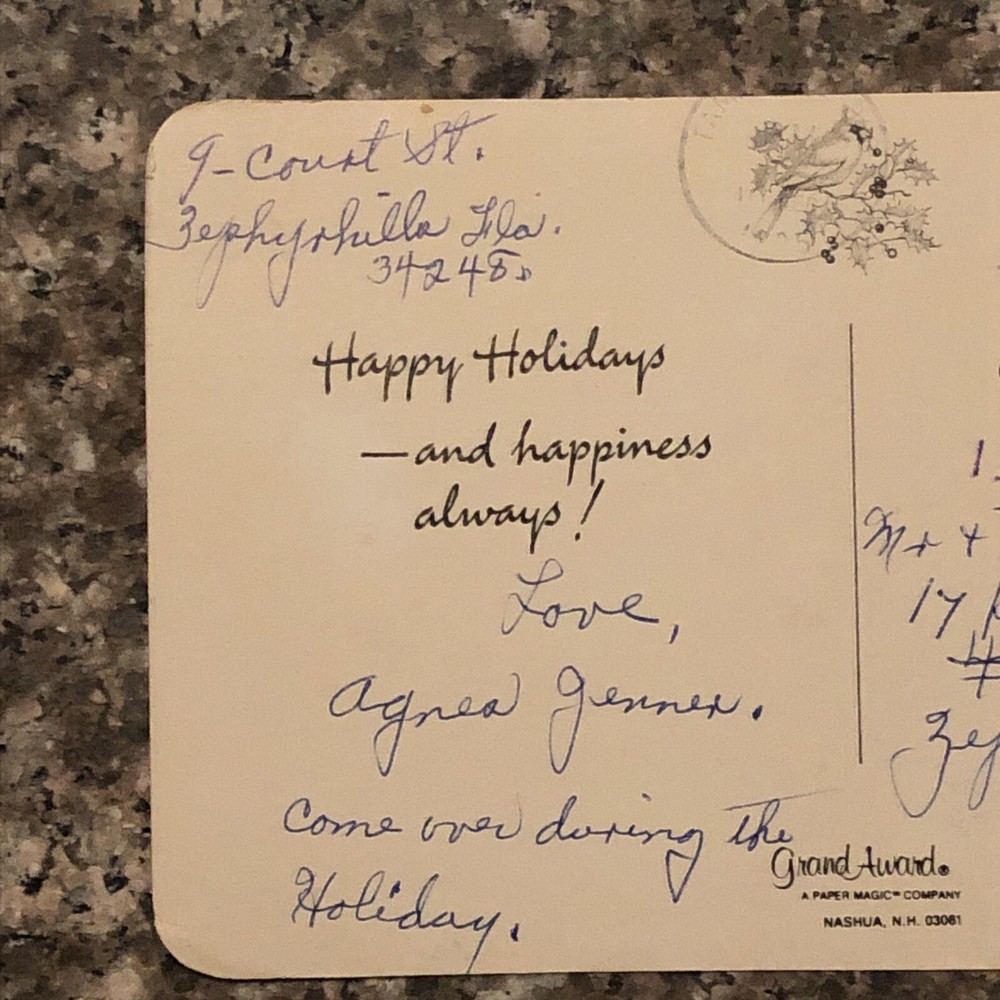 9-Court St.
Zephyrhills Fla.
34248.
TAM
Happy Holidays
—and happiness
always!
Love,
Agnes Jenner.
come over during the
Holiday.
Mr +
17
#
Zep
Grand Award®
A PAPER MAGIC™ COMPANY
NASHUA, N.H. 03061